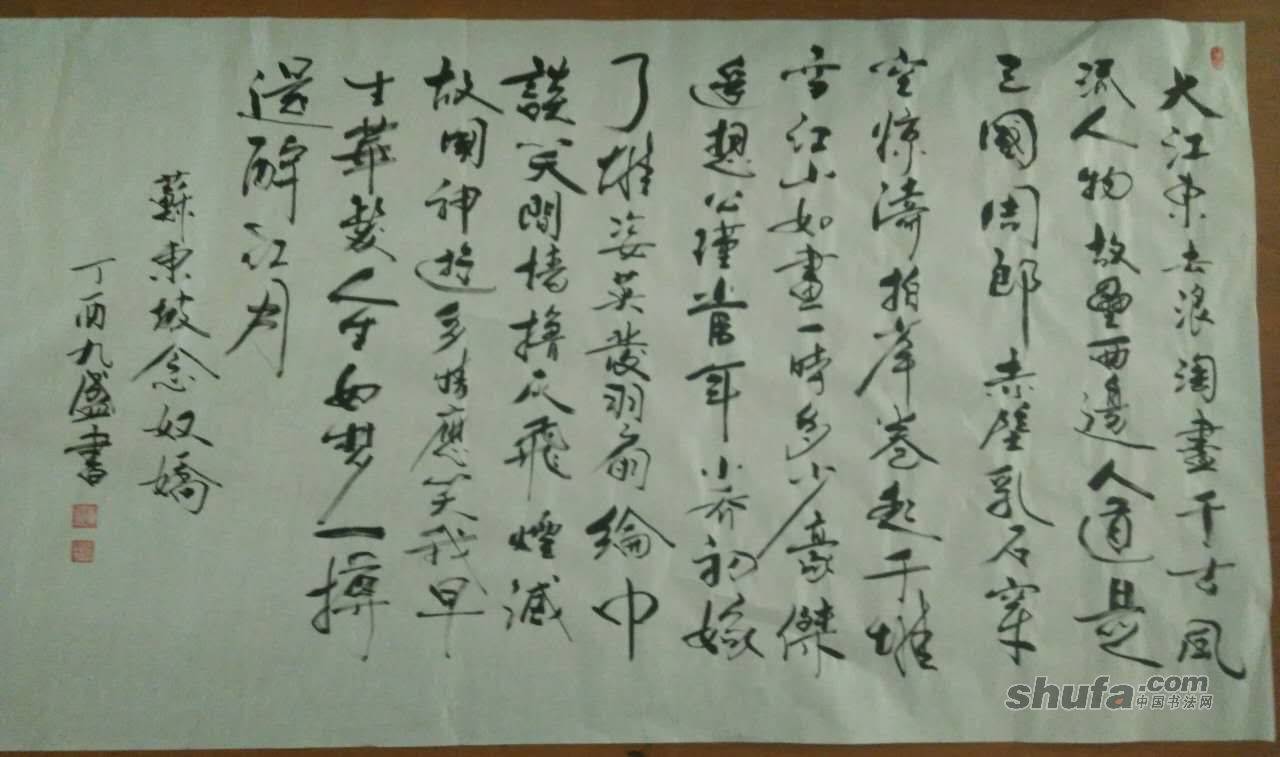 大江東去浪淘盡千古風
流人物故壘西邊人道是
三國周郎赤壁乳石穿
空惊濤拍岸卷起千堆
雪江山如畫一時多少豪傑
遥想公瑾當年小乔初嫁
了雄姿英發羽扇綸巾
談笑間檣櫓灰飛煙滅
故國神遊多情應笑我早
生華髮人生如梦一撙
還酹江月
蘇東坡念奴嬌
丁酉九盛書
shufa.com
中国书法网